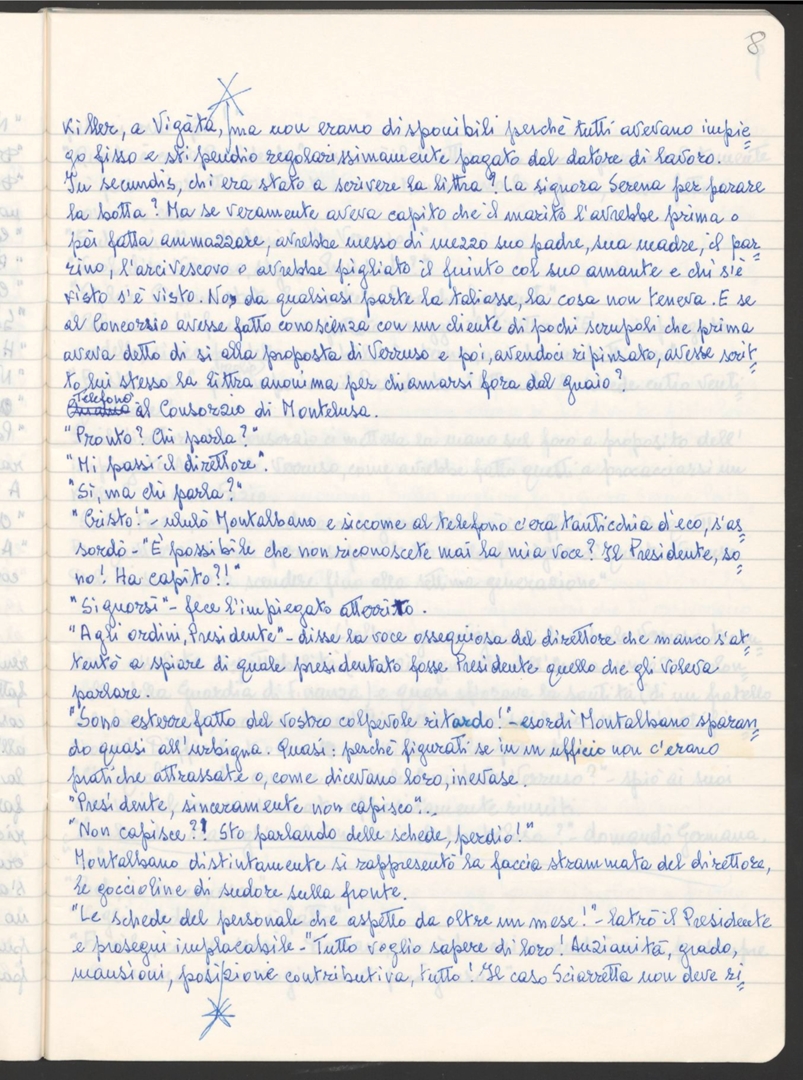 8
killer, a Vigàta, ma non erano disponibili perché tutti avevano impie=
go fisso e stipendio regolarissimamente pagato dal datore di lavoro.
In secundis, chi era stato a scrivere la littra? La signora Serena per parare
la botta? Ma se veramente aveva capito che il marito l'avrebbe prima o
poi fatta ammazzare, avrebbe messo di mezzo suo padre, sua madre, il par=
rino, l'arcivescovo o avrebbe pigliato il fuiuto col suo amante e chi s'è
visto s'è visto. No, da qualsiasi parte la taliasse, la cosa non teneva. E se
al Concorsio avesse fatto conoscienza con un cliente di pochi scrupoli che prima
aveva detto di sì alla proposta di Verruso e poi, avendoci ripinsato, avesse scrit=
to lui stesso la littra anonima per chiamarsi fora dal guaio?
Telefonò al Consorzio di Montelusa.
"Pronto? Chi parla?"
"Mi passi il direttore".
"Sì, ma chi parla?"
"Cristo!" - ululò Montalbano e siccome al telefono c'era tanticchia d'eco, s'as=
sordò - "È possibile che non riconoscete mai la mia voce? Il Presidente, so=
no! Ha capito?!"
"Signorsì" - fece l'impiegato atterrito.
"Agli ordini, Presidente" - disse la voce ossequiosa del direttore che manco s'at=
tentò a spiare di quale presidentato fosse Presidente quello che gli voleva
parlare.
"Sono esterrefatto del vostro colpevole ritardo!" - esordì Montalbano sparan=
do quasi all'urbigna. Quasi: perché figurati se in un ufficio non c'erano
pratiche attrassate o, come dicevano loro, inevase.
"Presidente, sinceramente non capisco"...
"Non capisce?! Sto parlando delle schede, perdio!"
Montalbano distintamente si rappresentò la faccia strammata del direttore,
le goccioline di sudore sulla fronte.
"Le schede del personale che aspetto da oltre un mese!" - latrò il Presidente
e proseguì implacabile - "Tutto voglio sapere di loro! Anzianità, grado,
mansioni, posizione contributiva, tutto! Il caso Sciarretta non deve ri=